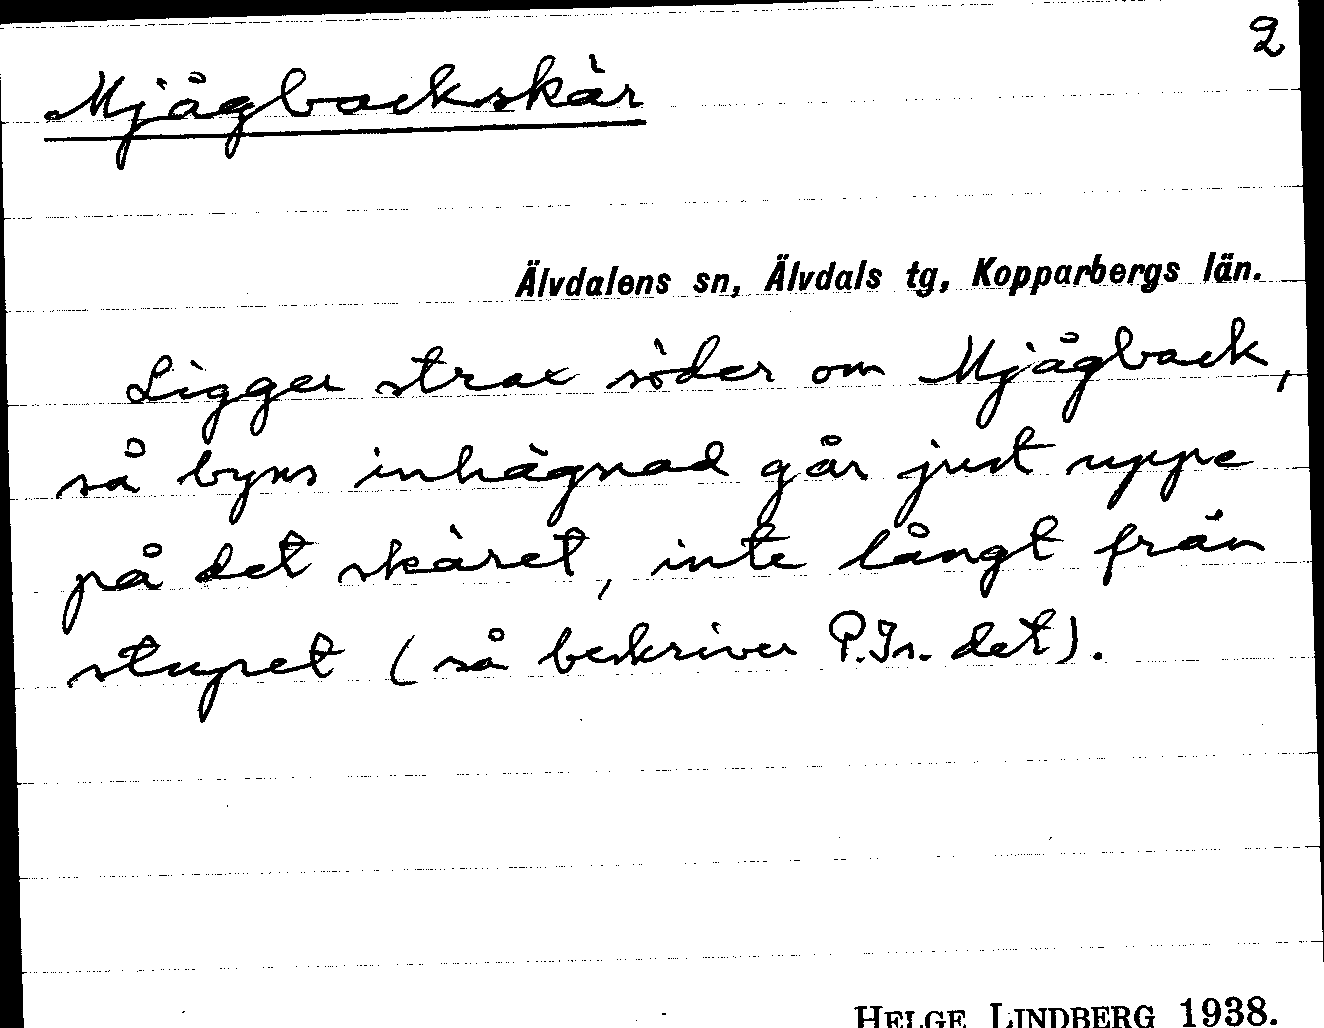 2
Mjågbackskär
Älvdalens sn, Älvdals tg, Kopparbergs län.
Ligger strax söder om Mjågback,
så byns inhägnad går just uppe
på det skäret, inte långt från
stupet (så beskriver P.Is. det).
HELGE LINDBERG 1938.